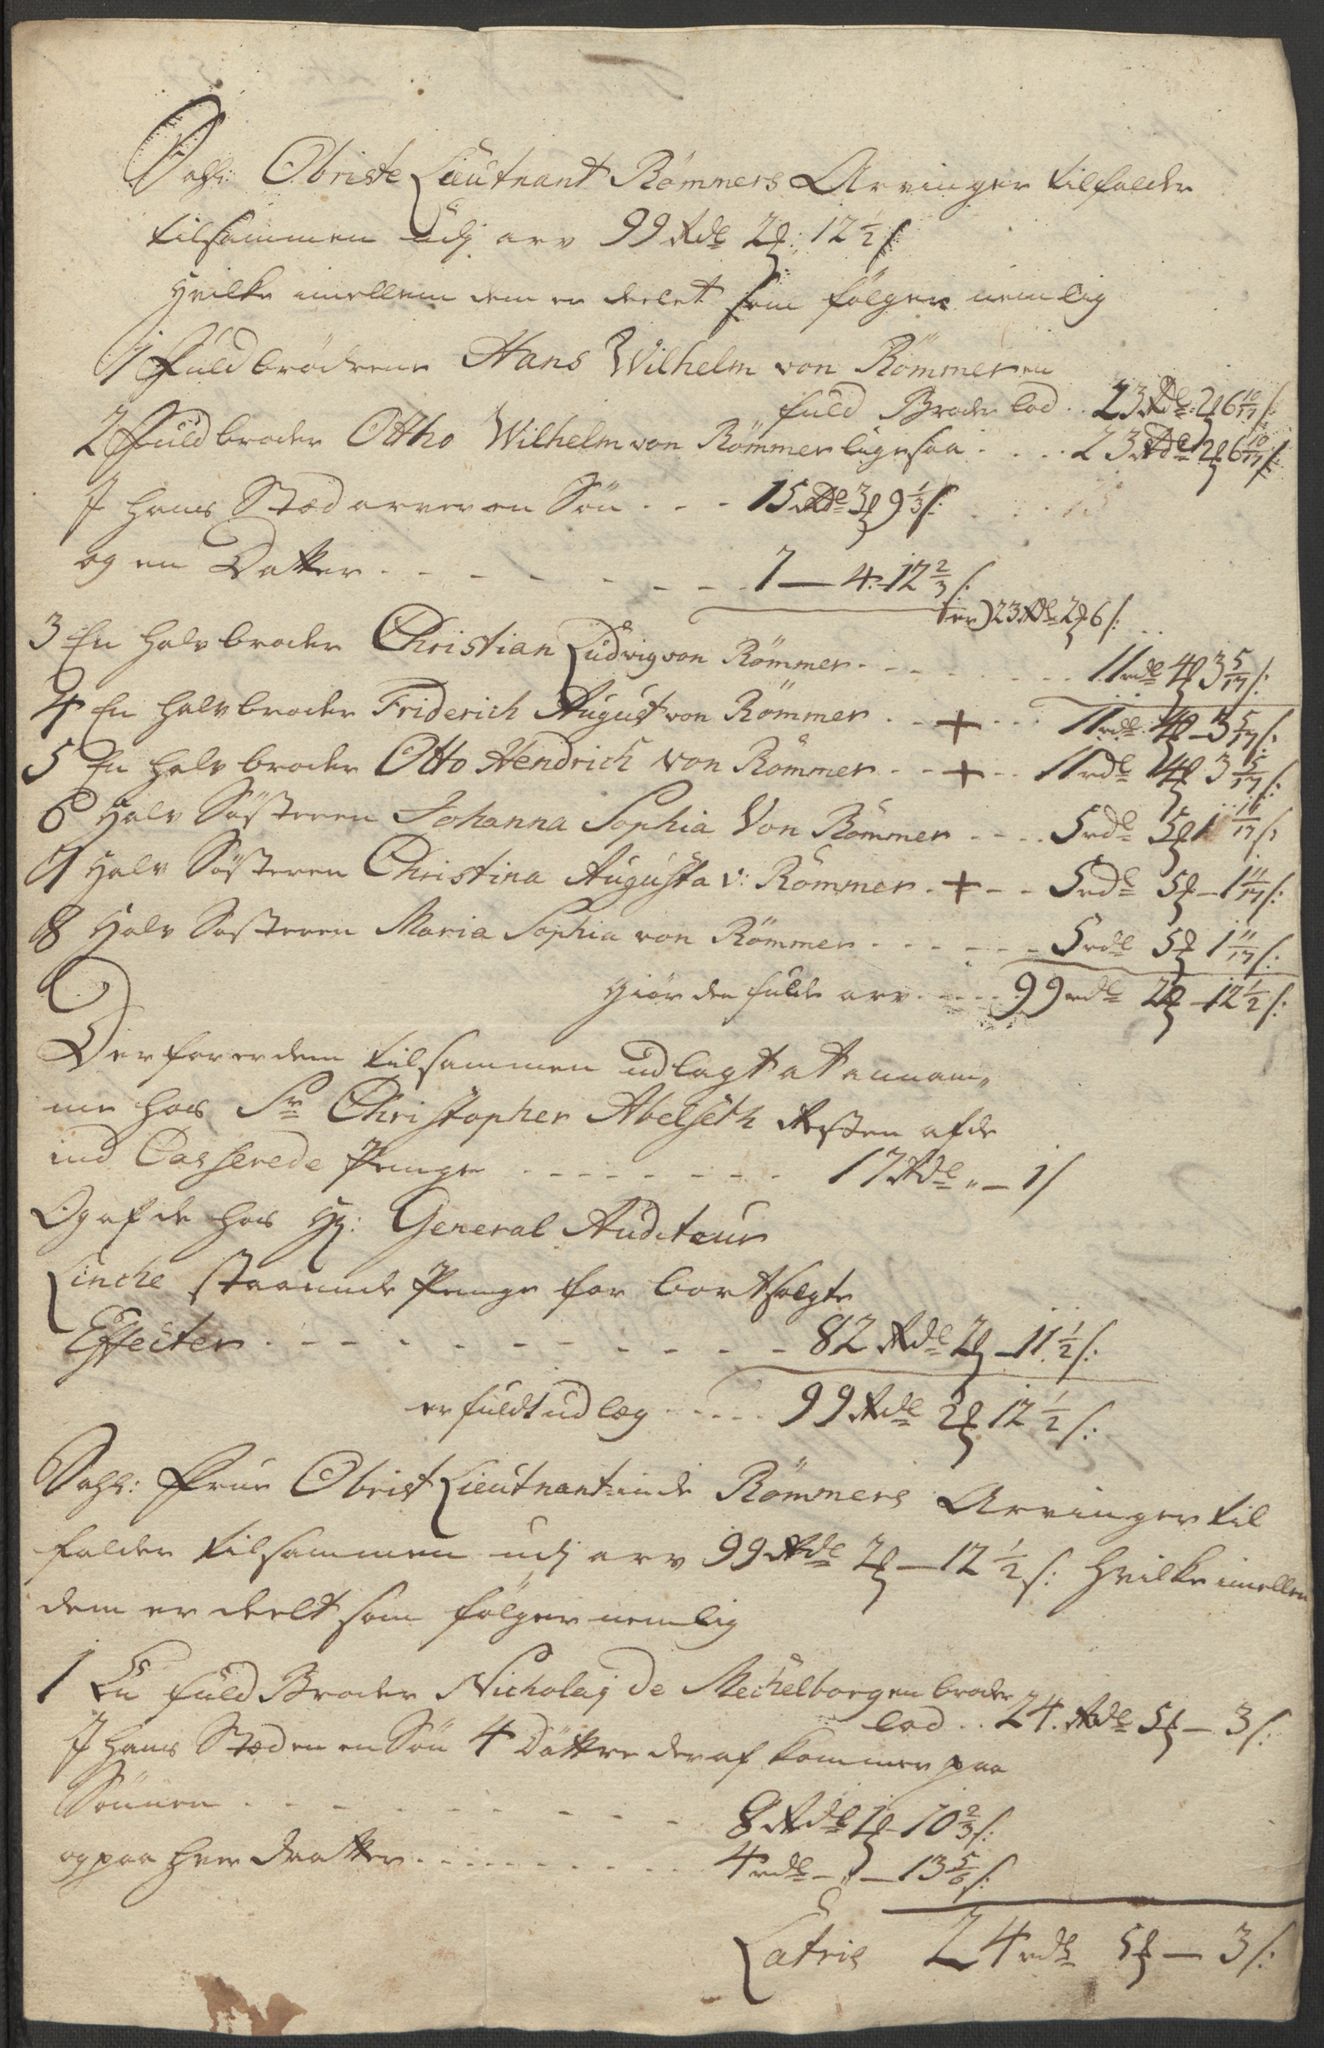 Sahl: Obriste Lieutnant Römmers Arvinger tilfalder
tilsammen udj arv 99 Rdl 2 ß: 12 1/2 s:
hvilke imellem dem er deelet som følger nemlig
1 Fuldbrodrene Hans Wilhelm von Römmer en
fuld Broder lod .. 23 Rdl: 2 ß 6 10/17 s:
2 Fuldbroder Otto Wilhelm von Römmer ligesaa .... 23 Rdl 2 ß 6 10/17 s:
J hans Stæd arver en Søn ... 15 Rdl 3 ß 9 1/3 s:
og en Datter ........ 7 — 4 - 12 2/3 s:
er) 23 Rdl 2 ß 6 s:
3 En halv broder Christian Ludvig von Römmer ........ 11 rdl 4 ß 3 5/17 s:
4 En halv broder Friderich August von Römmer .. + ... 11 rdl 4 ß — 3 5/17 s:
5 En halv broder Otto Hendrich von Römmer .. + .. 11 rdl 4 ß 3 5/17 s:
6 Halv Søsteren Johanna Sophia Von Römmer .... 5 rdl 5 ß 1 11/17 s:
7 Halv Søsteren Christina Augusta v: Römmer . + .. 5 rdl 5 ß — 1 11/17 s:
8 Halv Søsteren Maria Sophia von Römmer ...... 5 rdl 5 ß 1 11/17 s:
giør den fulde arv ..... 99 rdl 2 ß — 12 1/2 s:
Derfor er dem tilsammen udlagt at annam„
me hos Sr Christopher Abelseth Resten af de
ind Casserede Penge ........ 17 Rdl „ — 1 s
Og af de hos Hr: General Auditeur
Linche staaende Penge for bortsolgte
Effecter ........... 82 Rdl 2 ß — 11 1/2 s:
er fuldt udlæg ..... 99 Rdl 2 ß 12 1/2 s:
Sahl: Frue Obrist Lieutnantinde Römmers Arvinger til
falder tilsammen udj arv 99 Rdl 2 ß — 12 1/2 s: hvilke imellem
dem er deelt som følger nemlig
1 En fuld Broder Nicholaj de Mechelborg en broder
lod .. 24. Rdl 5 ß — 3 s:
J hans Stæd en en Søn 4 Døttre deraf kommer paa
Sønnen ......... 8 Rdl 1 ß - 10 2/3 s:
og paa hver Datter .......... 4 rdl — „ — 13 5/6 s:
Latris 24 rdl 5 ß — 3 s: